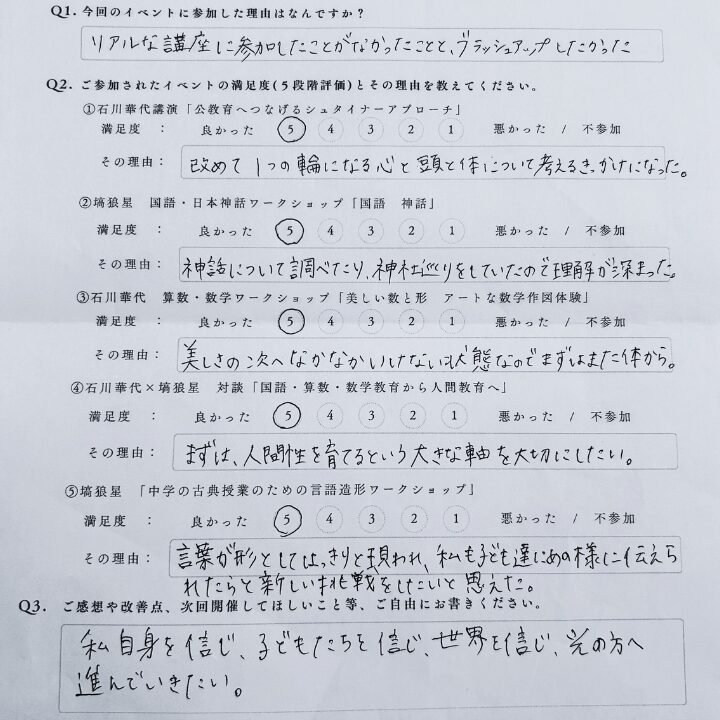 Q1. 今回のイベントに参加した理由はなんですか？
リアルな講座に参加したことがなかったことと、ブラッシュアップしたかった
Q2. ご参加されたイベントの満足度(５段階評価)とその理由を教えてください。
①石川華代講演「公教育へつなげるシュタイナーアプローチ」
満足度 ： 良かった 5 4 3 2 1 悪かった / 不参加
その理由： 改めて 1つの輪になる心と頭と体について考えるきっかけになった。
②塙狼星 国語・日本神話ワークショップ「国語 神話」
満足度 ： 良かった 5 4 3 2 1 悪かった / 不参加
その理由： 神話について調べたり、神社巡りをしていたので理解が深まった。
③石川華代 算数・数学ワークショップ「美しい数と形 アートな数学作図体験」
満足度 ： 良かった 5 4 3 2 1 悪かった / 不参加
その理由： 美しさの次へなかなかいけない状態なのでまずはまた体から。
④石川華代×塙狼星 対談「国語・算数・数学教育から人間教育へ」
満足度 ： 良かった 5 4 3 2 1 悪かった / 不参加
その理由： まずは、人間性を育てるという大きな軸を大切にしたい。
⑤塙狼星 「中学の古典授業のための言語造形ワークショップ」
満足度 ： 良かった 5 4 3 2 1 悪かった / 不参加
その理由： 言葉が形としてはっきりと現われ、私も子ども達にあの様に伝えら
れたらと新しい挑戦をしたいと思えた。
Q3. ご感想や改善点、次回開催してほしいこと等、ご自由にお書きください。
私自身を信じ、子どもたちを信じ、世界を信じ、光の方へ
進んでいきたい。